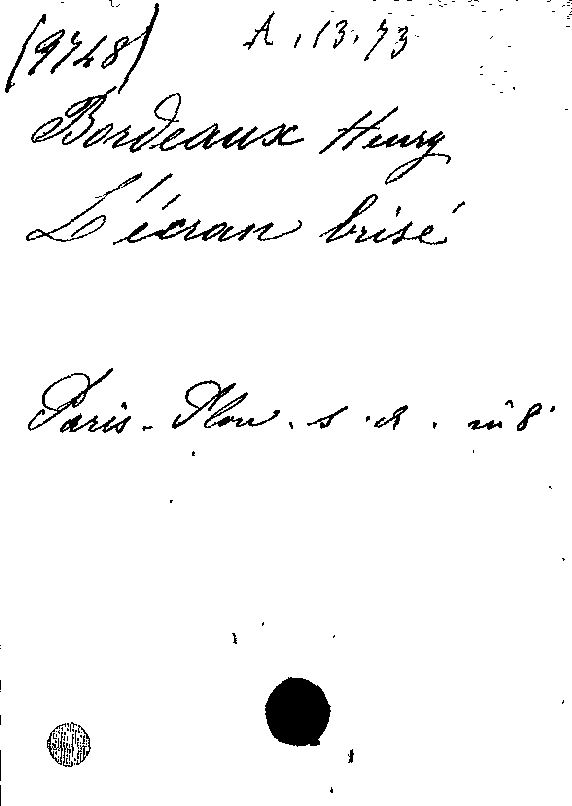 (9748) A.13.73
Bordeaux Henry
L'écran brisé
Paris - Plon. s. d. in 8°